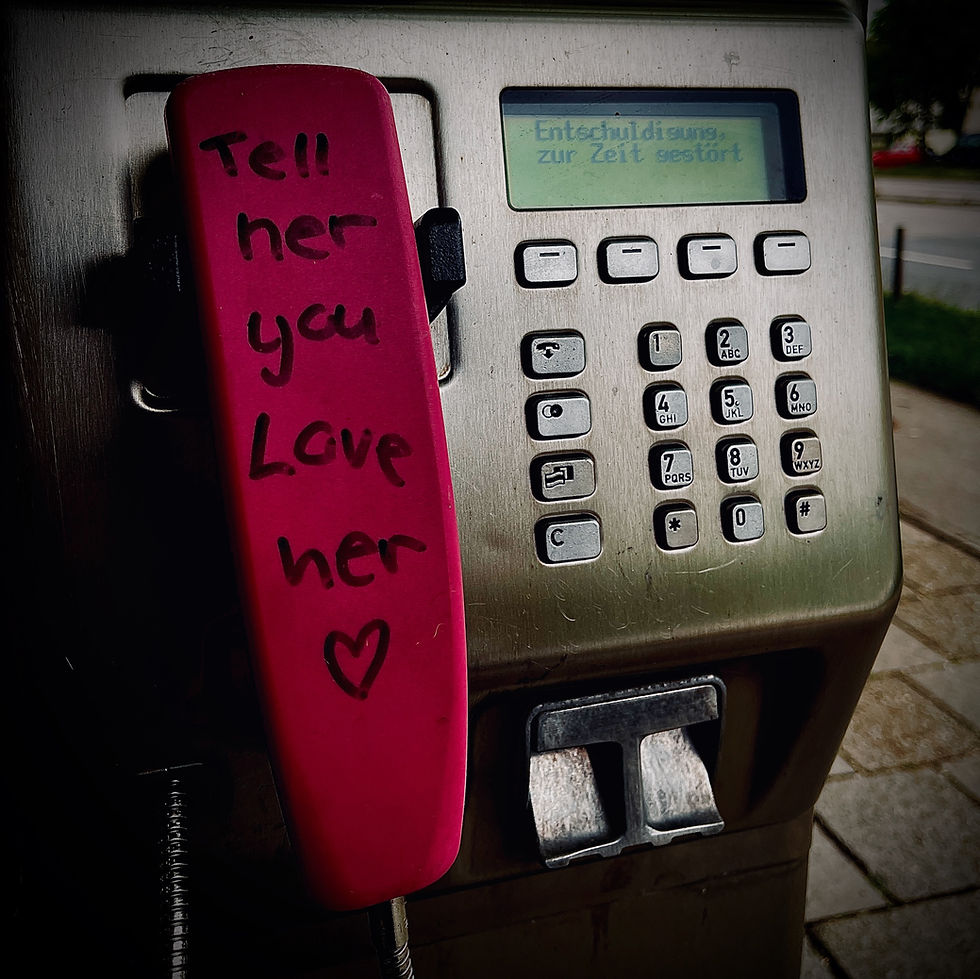 Tell
her
you
Love
her
Entschuldigung,
zur Zeit gestört
1
2
ABC
3
DEF
4
GHI
5
JKL
6
MNO
7
PQRS
8
TUV
9
WXYZ
C
*
0
#